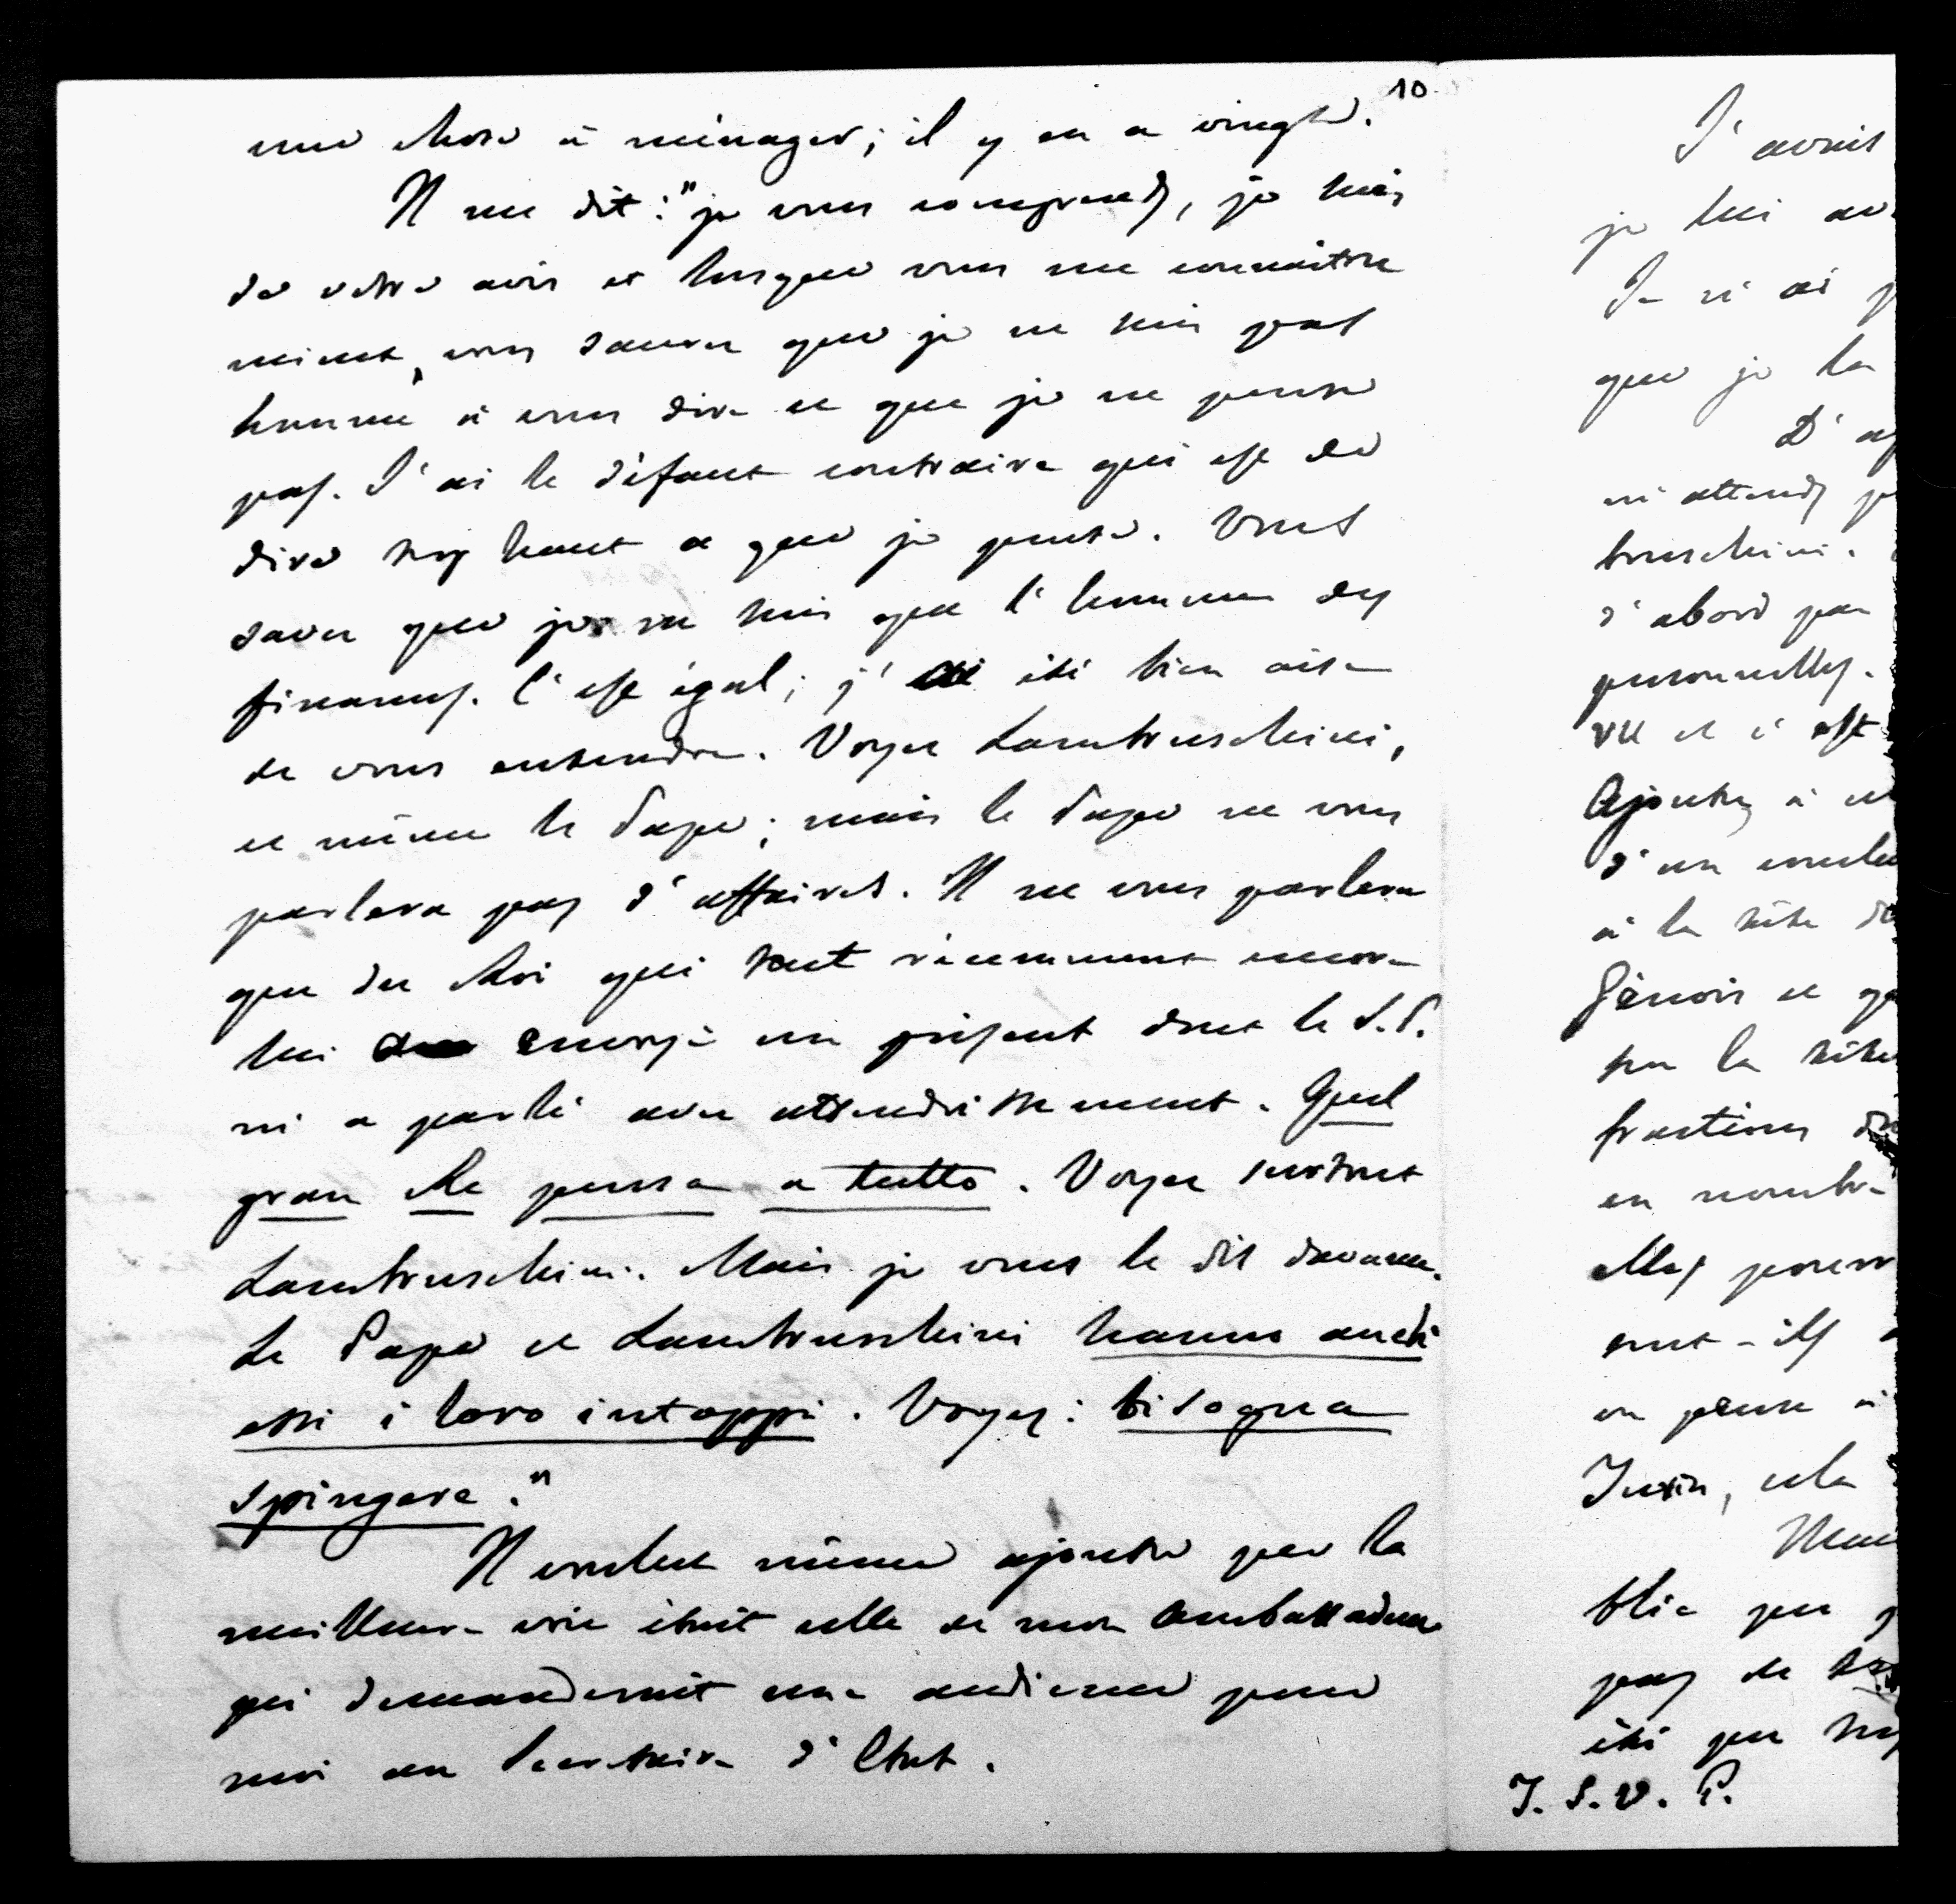 10
une chose à ménager; il y en a vingt.
Il me dit: "je vous comprends, je suis
de votre avis et lorsque vous me connaîtrez
mieux, vous saurez que je ne suis pas
homme à vous dire ce que je ne pense
pas. J'ai le défaut contraire qui est de
dire trop haut ce que je pense. Vous
savez que je ne suis que l'homme des
finances. C'est égal; j'ai été bien aise
de vous entendre. Voyez Lambruschini,
et même le Pape; mais le Pape ne vous
parlera pas d'affaires. Il ne vous parlera
que du Roi qui tout récemment encore
lui envoyé un présent dont le S.P.
m'a parlé avec attendrissement. Quel
gran Re pensa a tutto. Voyez surtout
Lambruschini. Mais je vous le dis d'avance.
Le Pape et Lambruschini hanno anch'
essi i loro intoppi. Voyez: bisogna
spingere."
Il voulut même ajouter que la
meilleure voie était celle de mon Ambassadeur
qui demanderait une audience pour
moi au Secrétaire d'Etat.
J'avais
je lui av
Je n'ai p
que je la
D'ap
m'attends p
bruschini.
d'abord pa
personnelles.
vu et c'est
Ajoutez à ce
d'un
à la tête de
Génois et
sur la tête
fractions
en nombre
elles
ont-ils
on pense à
Turin, cela
Mais
blie que
pas de
été que trop
T. S. V. P.